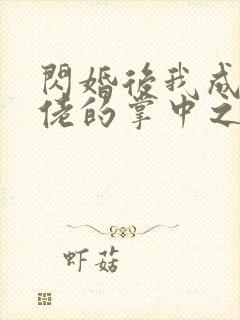 閃婚後我成
佬的掌中之
虾菇